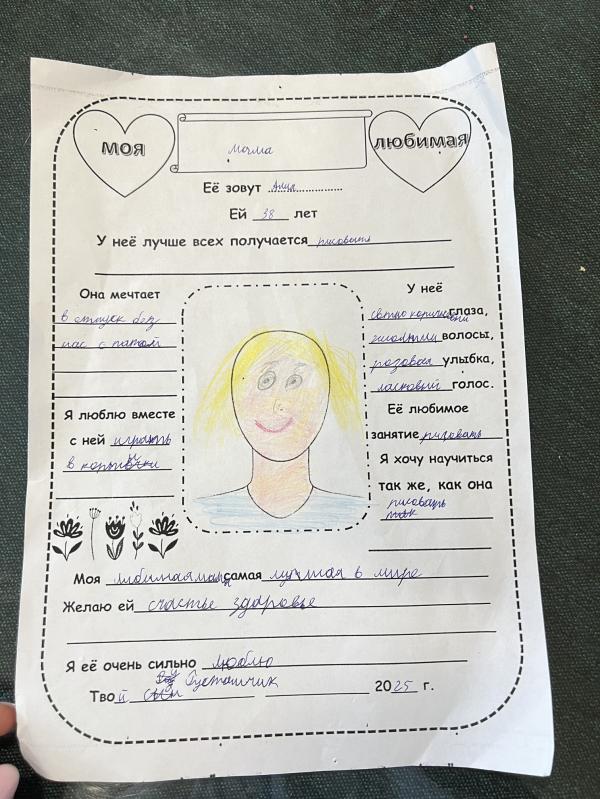 моя
Мама
любимая
Её зовут Алия
Ей 38 лет
У неё лучше всех получается рисовать
Она мечтает
в отпуск без
нас с папой
Я люблю вместе
с ней играть
в
У неё
светло коричневые глаза,
волосы,
розовая улыбка,
ласковый голос.
Её любимое
занятие рисовать
Я хочу научиться
так же, как она
рисовать
так
Моя любимая мама самая лучшая в мире
Желаю ей счастье здоровье
Я её очень сильно люблю
Твой сын
2025 г.